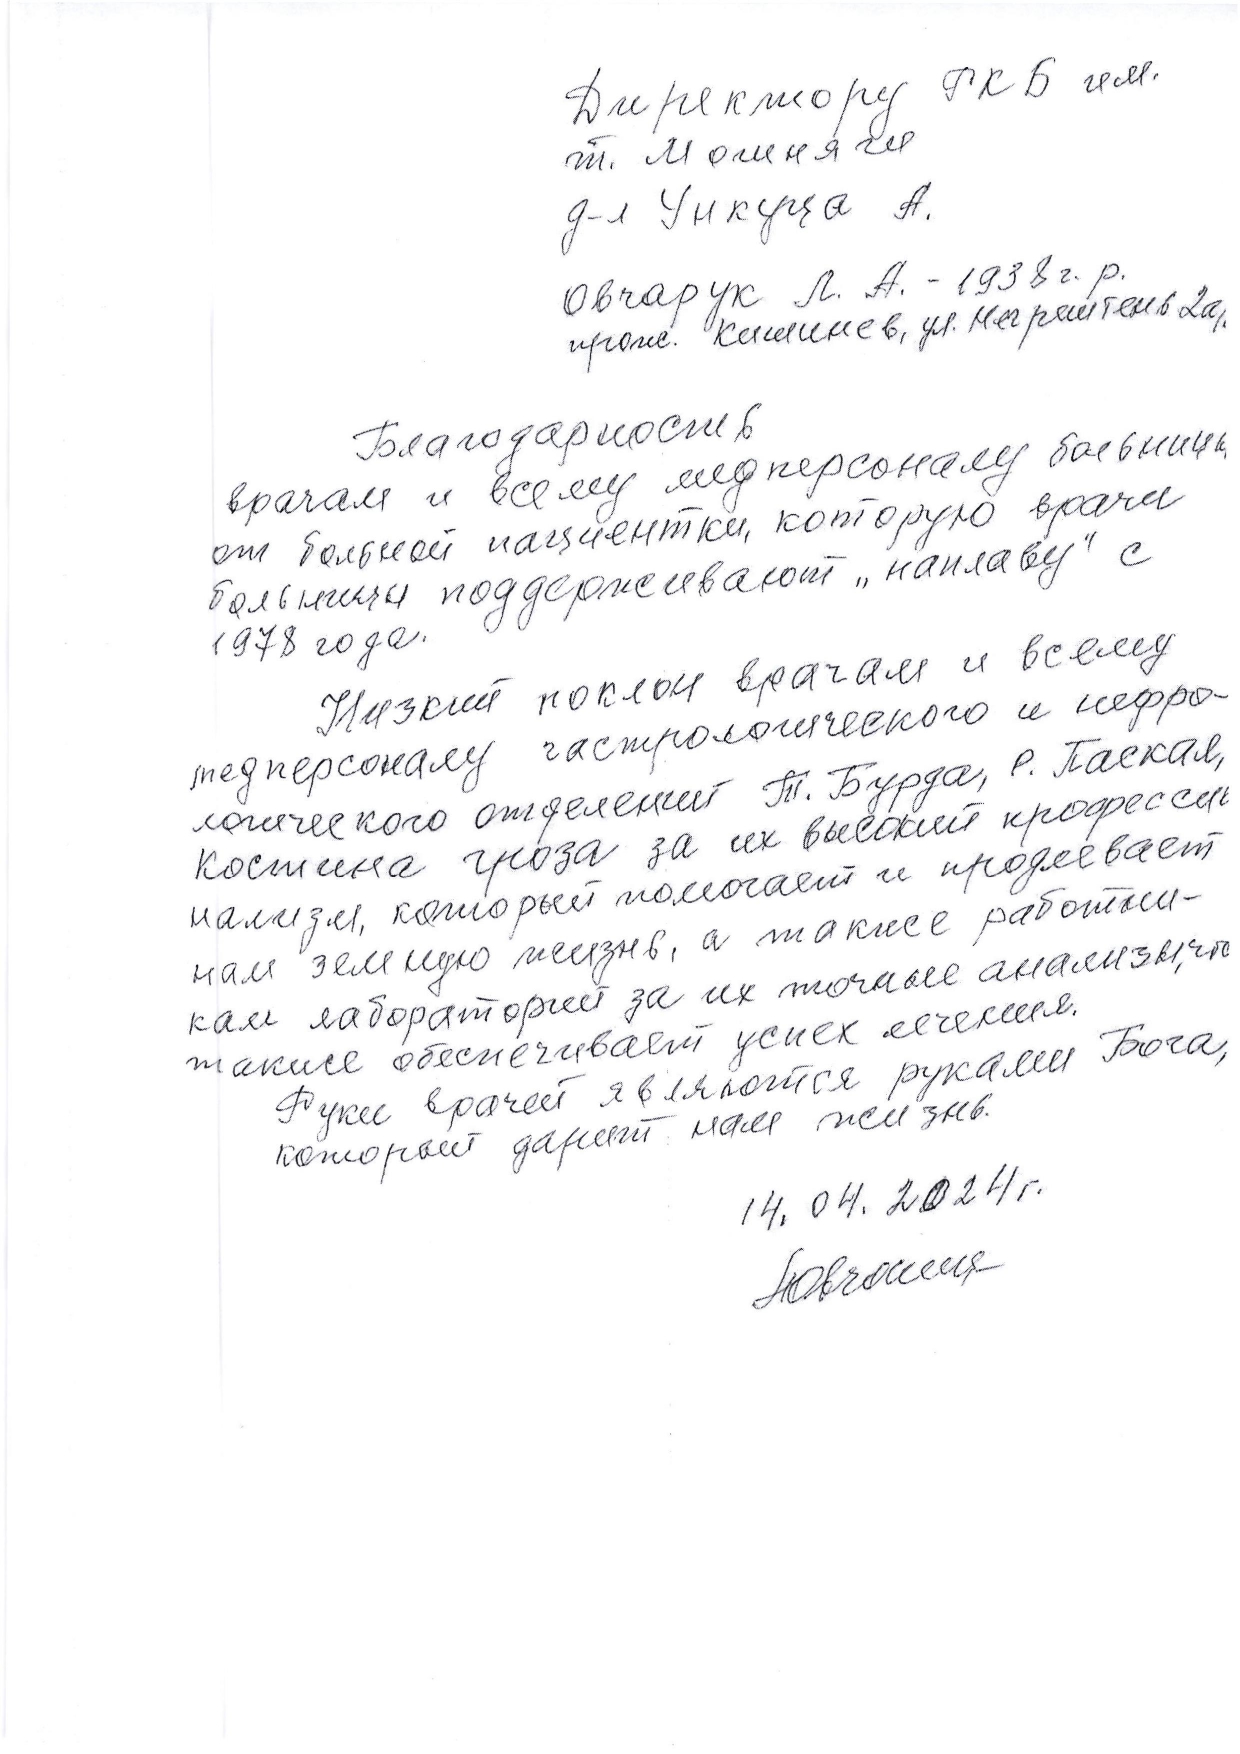 Директору РКБ им.
т. Мошняги
д-л Ункуца А.
Овчарук Л. А. - 1938 г. р.
прож. Кишинев, ул. 2а,
Благодарность
врачам и всему медперсоналу больницы
от больной пациентки, которую врачи
больницы поддерживают „наплаву" с
1978 года.
Низкий поклон врачам и всему
медперсоналу гастрологического и нефро-
логического отделений Т. Бурда, Р. Паскал,
Костина Гроза за их высокий професси
нализм, который помогает и продлевает
нам земную жизнь, а также работни-
кам лабораторий за их точные анализы, что
также обеспечивает успех лечения.
Руки врачей являются руками Бога,
который дарит нам жизнь.
14. 04. 2024 г.